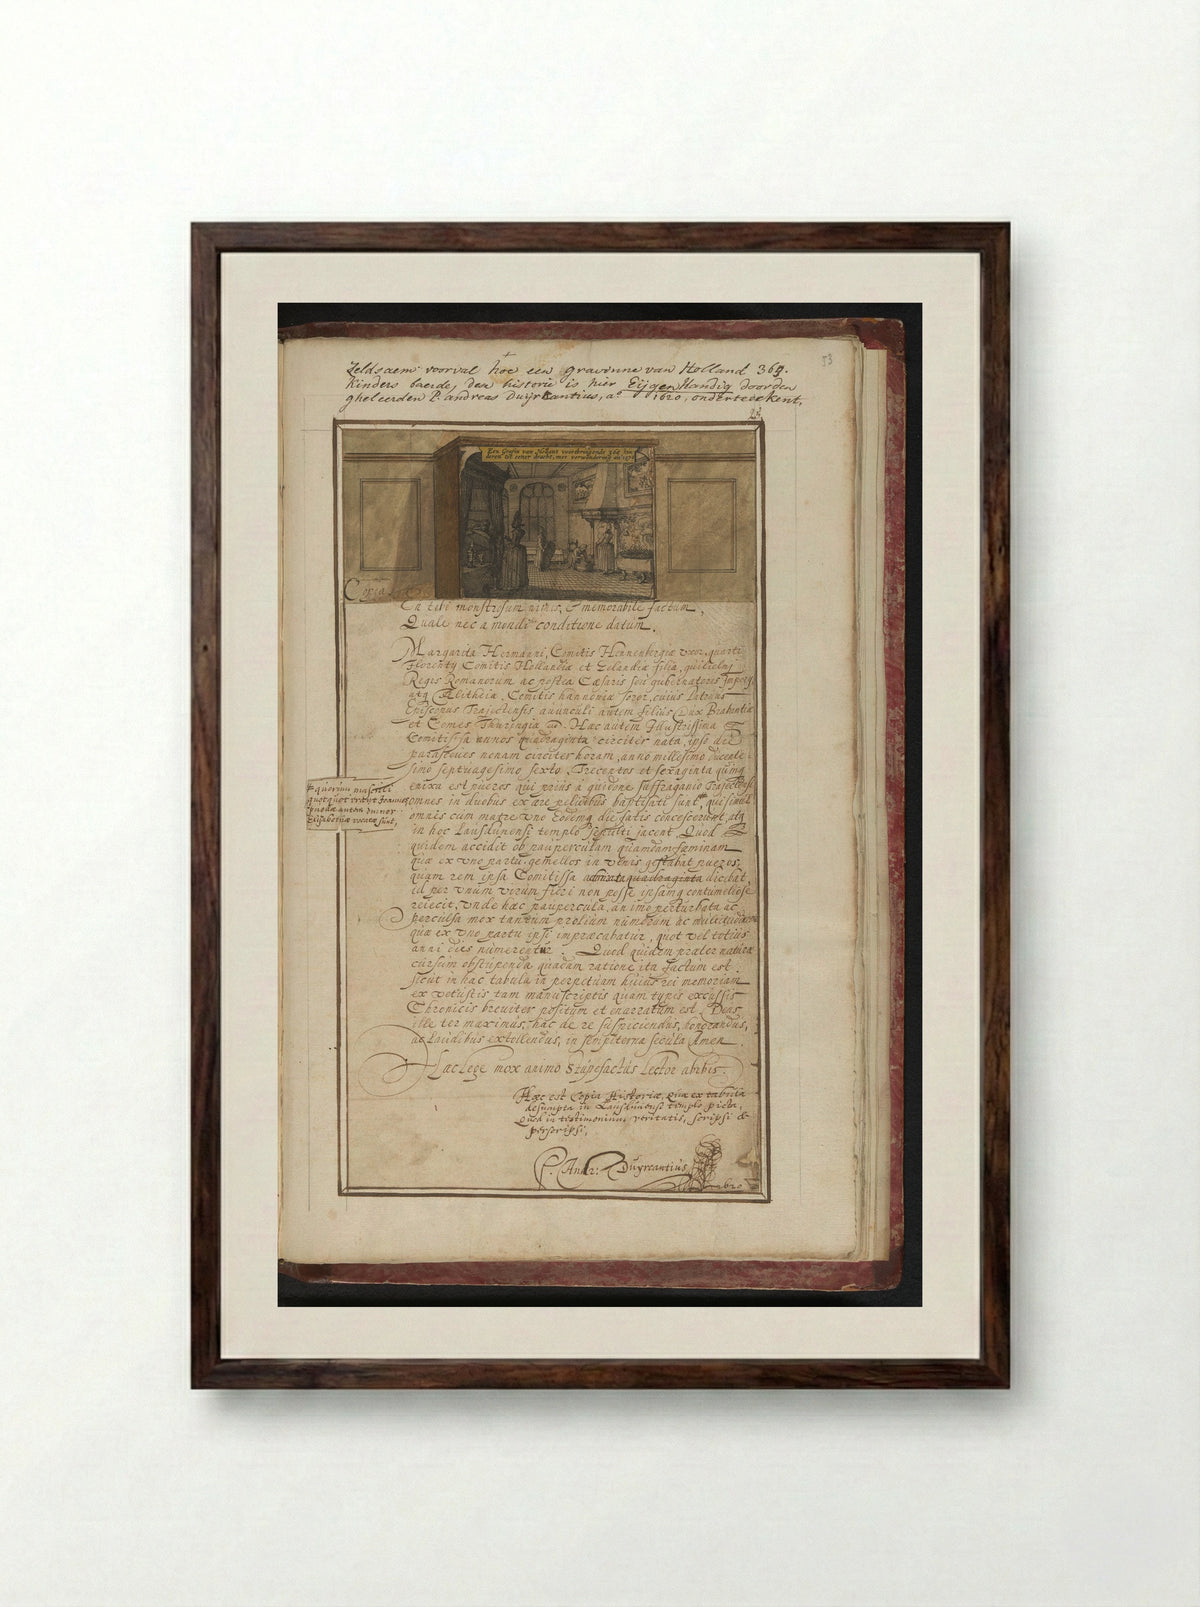 53
Zeldsaem voorval hoe een gravenne van Holland 365.
kinders baerde, den historie is hier Eijgen Handig door den
gheleerden P. andreas Duijrkantius, ao 1620, onderteeckent.
Een Grafin van Hollant voortbringende 364 kin
deren tot eener dracht, met verwondering an 1276
Copia
En tibi monstrosum nimis, & memorabile factum,
Quale nec a mundi conditione datum.
Margarita Hermanni, Comitis Hennenbergiæ vxor, quarti
Florenty Comitis Hollandiæ et Zelandiæ filia, guilielmi
Regis Romanorum ac postea Cæsaris seu gubernatoris impery,
atq Alitheiæ, Comitis hannoniæ soror, cuius Patruus
Episcopus Trajectensis, auunculi autem filius, Dux Brabantiæ
et Comes Thuringiæ Hæc autem Illustrissima
Comitissa annos quadraginta circiter nata, ipso die
parasceues nonam circiter horam, anno millesimo ducente
simo septuagesimo sexto, Trecentos et sexaginta quinq
enixa est pueros qui prius à guidone suffraganio Trajectense
omnes in duobus ex ære peluibus baptisati sunt, qui simul
omnes cum matre vno eodemq die fatis concesserunt, atq
in hoc Lausdunensi templo sepulti jacent. Quod
quidem accidit ob pauperculam quamdam fæminam
quæ ex vno partu gemellos in vlnis gestabat pueros,
quam rem ipsa Comitissa admirata dicebat,
id per vnum virum fieri non posse ipsamq contumeliose
reiecit, vnde hæc paupercula, animo perturbata ac
perculsa mox tantum prolium numerum ac multitudinem
quæ ex vno partu ipsi impræcabatur, quot vel totius
anni dies numerentur. Quod quidem præter naturæ
cursum obstupenda quadam ratione ita factum est
sicut in hac tabula in perpetuam huius rei memoriam
ex vetustis tam manuscriptis quam typis excussis
Chronicis breuiter positum et enarratum est. Deus
ille ter maximus, hac de re suspiciendus, honorandus,
ac laudibus extollendus, in sempiterna secula Amen.
Hæc lege mox animo Stupefactus Lector abibis.
quorum masculi
quotquot erant Joannes
puellæ autem omnes
Elisabethæ vocatæ sunt,
Hæc est Copia Historiæ, quæ ex tabula
desumpta in Lausdunensi templo picta,
Quod in testimonium veritatis, scripsi &
perscripsi,
P. Andr: Duyrcantius